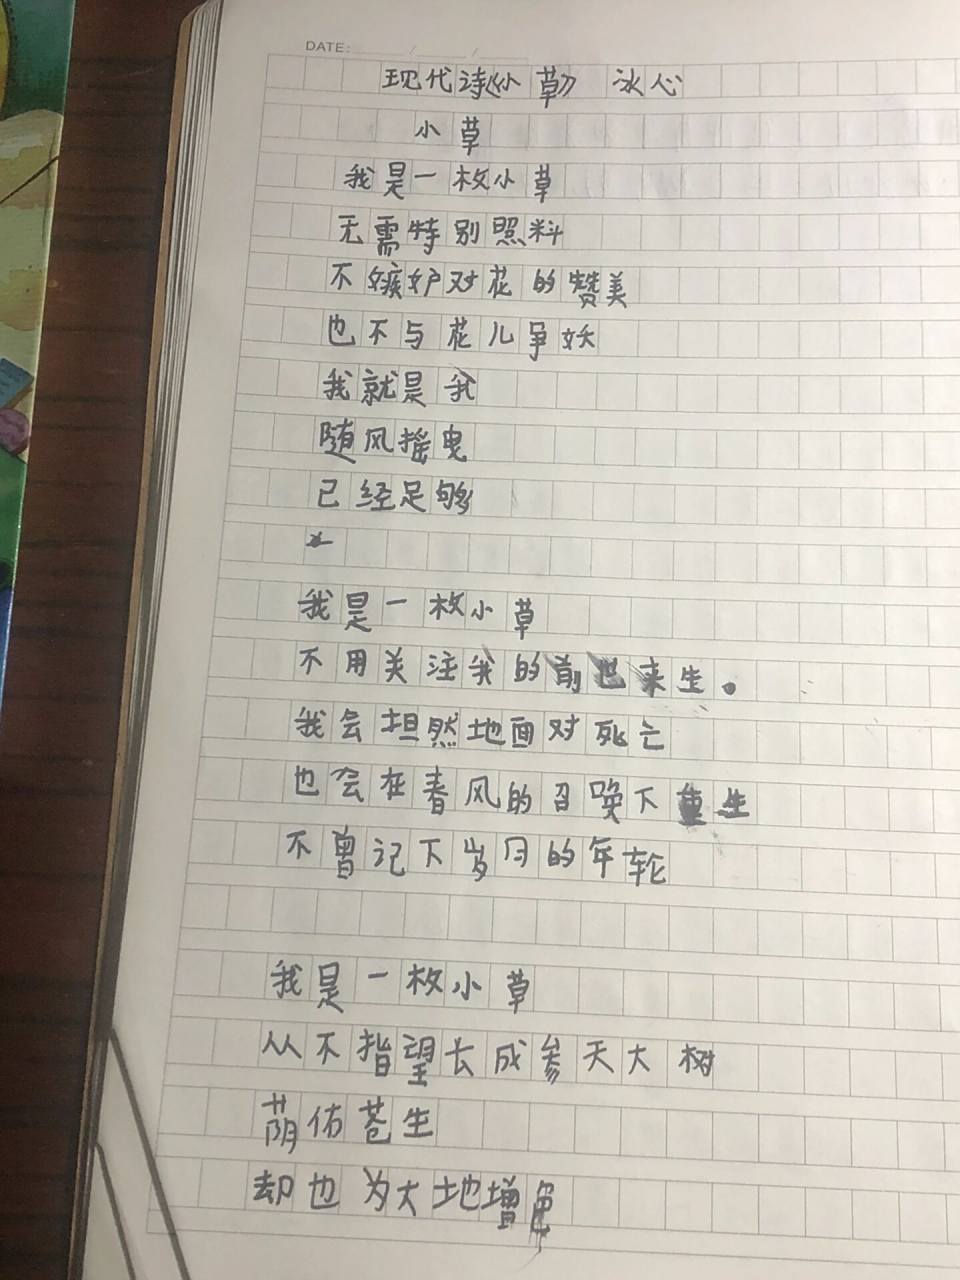 DATE:
现代诗《小草》 冰心
小草
我是一枚小草
无需特别照料
不嫉妒对花的赞美
也不与花儿争妖
我就是我
随风摇曳
已经足够
我是一枚小草
不用关注我的前世来生。
我会坦然地面对死亡
也会在春风的召唤下重生
不曾记下岁月的年轮
我是一枚小草
从不指望长成参天大树
荫佑苍生
却也为大地增色